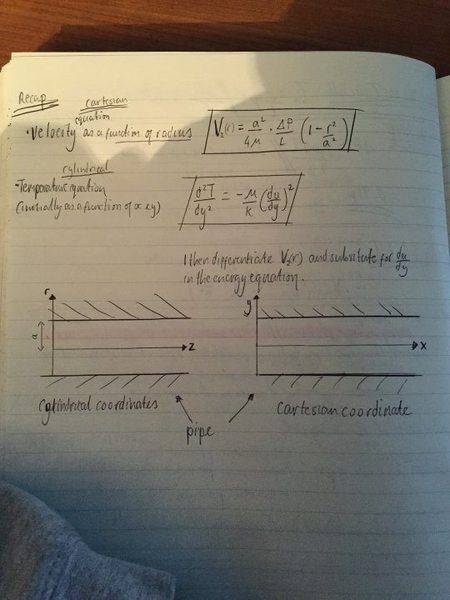 Recap
cartesian
equation
• Velocity as a function of radius
V₂(r) = a²/4μ · ΔP/L (1 - r²/a²)
cylindrical
- Temperature equation
(initially as a function of x & y)
d²T/dy² = -μ/k (du/dy)²
I then differentiate V₂(r) and substitute for du/dy
in the energy equation.
r
y
a
z
x
Cylindrical coordinates
cartesian coordinate
pipe